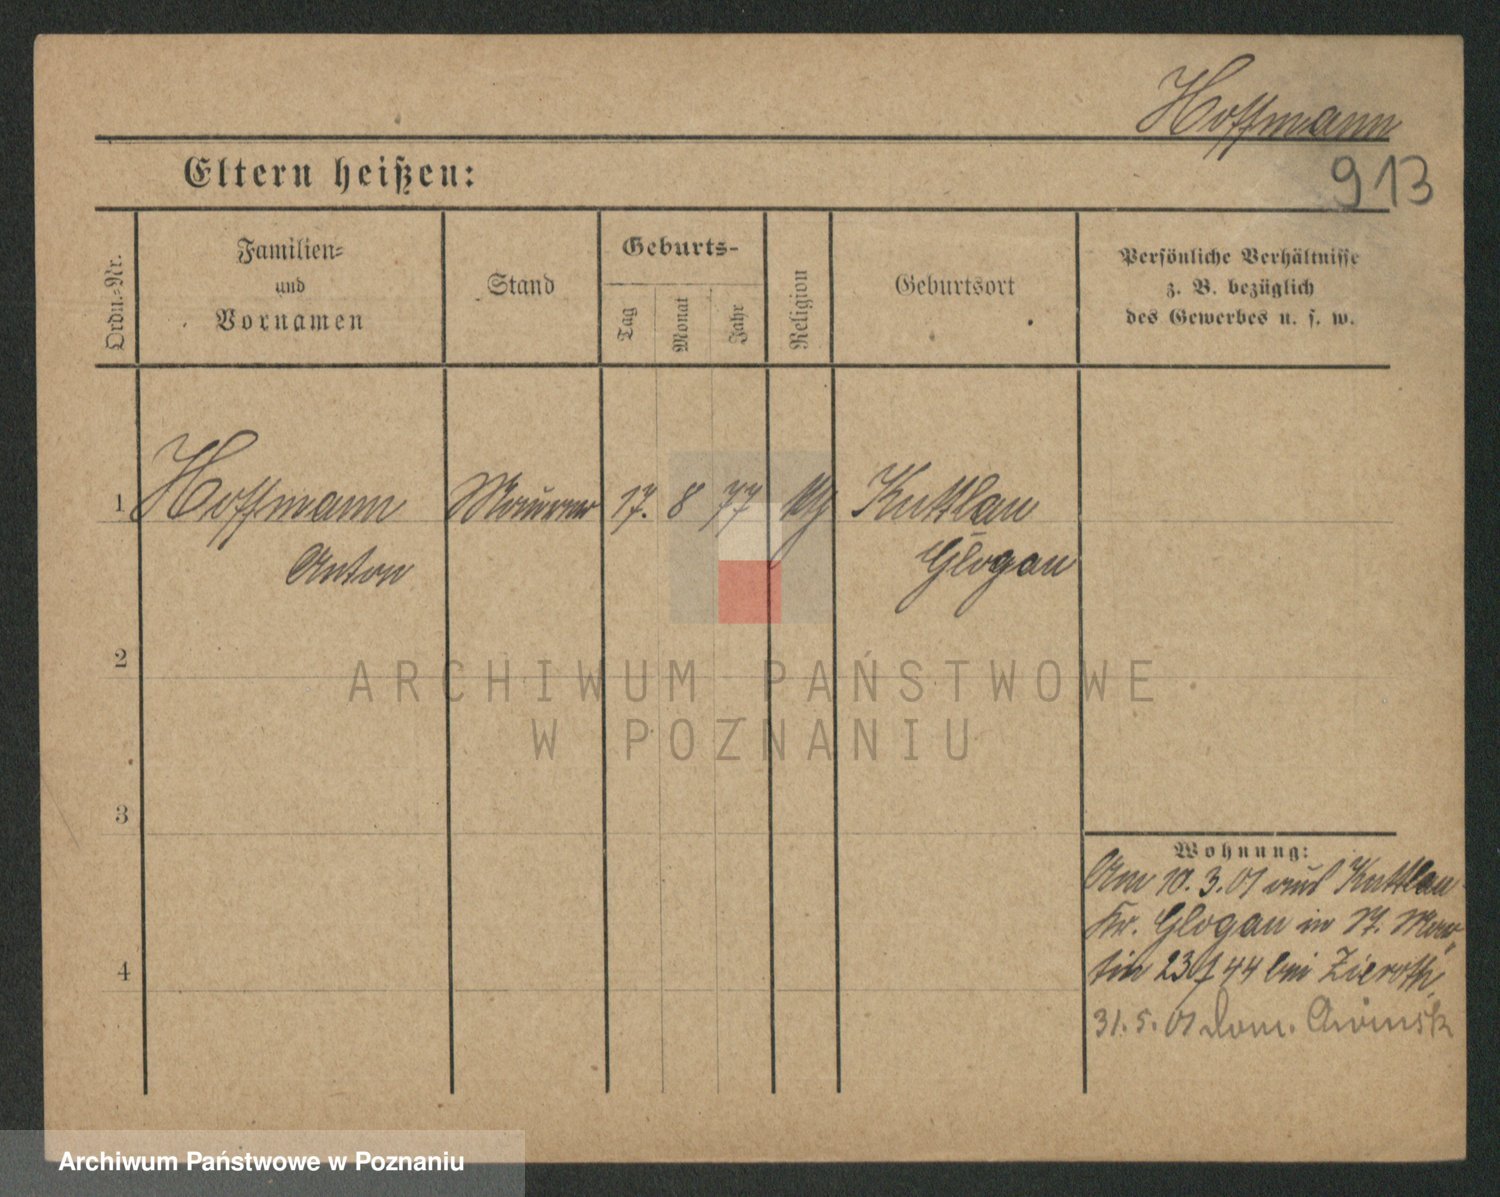 Hoffmann
913
Eltern heißen:
Ordn.-Nr.
Familien-
und
Vornamen
Stand
Geburts-
Tag
Monat
Jahr
Religion
Geburtsort
Persönliche Verhältnisse
z. B. bezüglich
des Gewerbes u. s. w.
1 Hoffmann Maurer 17. 8 77 Kuttlau
Anton Glogau
2
ARCHIWUM PAŃSTWOWE
W POZNANIU
3
4
Wohnung:
Am 10.3.01 aus Kuttlau
Kr. Glogau in St. Mar-
tin 23/44 bei Zieroth.
31.5.01 Dom.
Archiwum Państwowe w Poznaniu